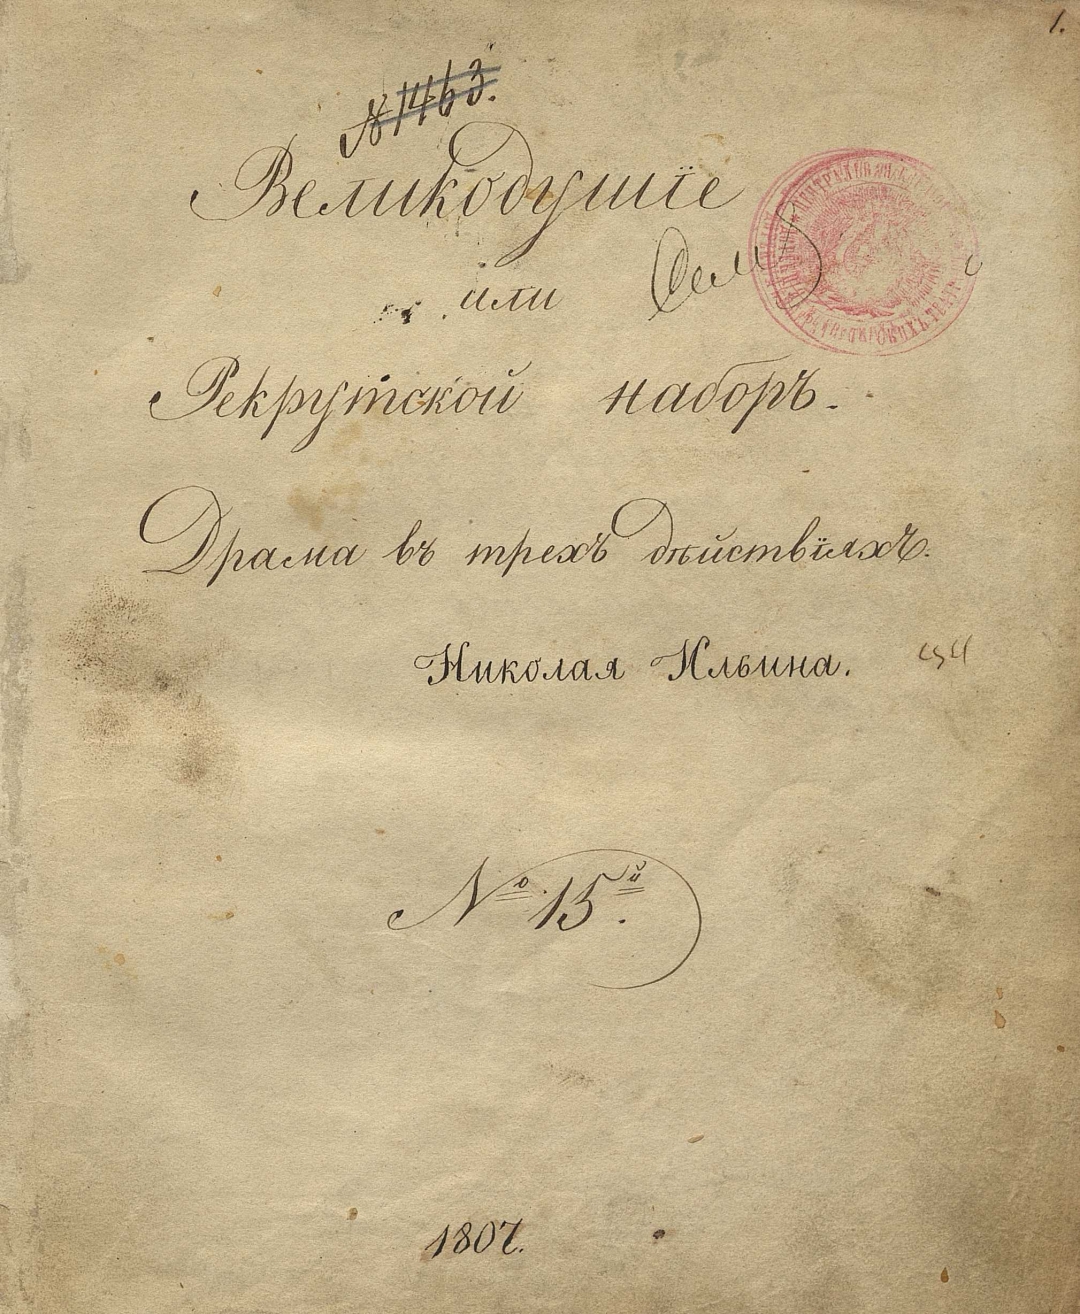 1.
№ 1463.
Великодушіе
или
Рекрутской наборъ.
Драма въ трехъ дѣйствіяхъ.
Николая Ильина.
№ 15й.
1807.